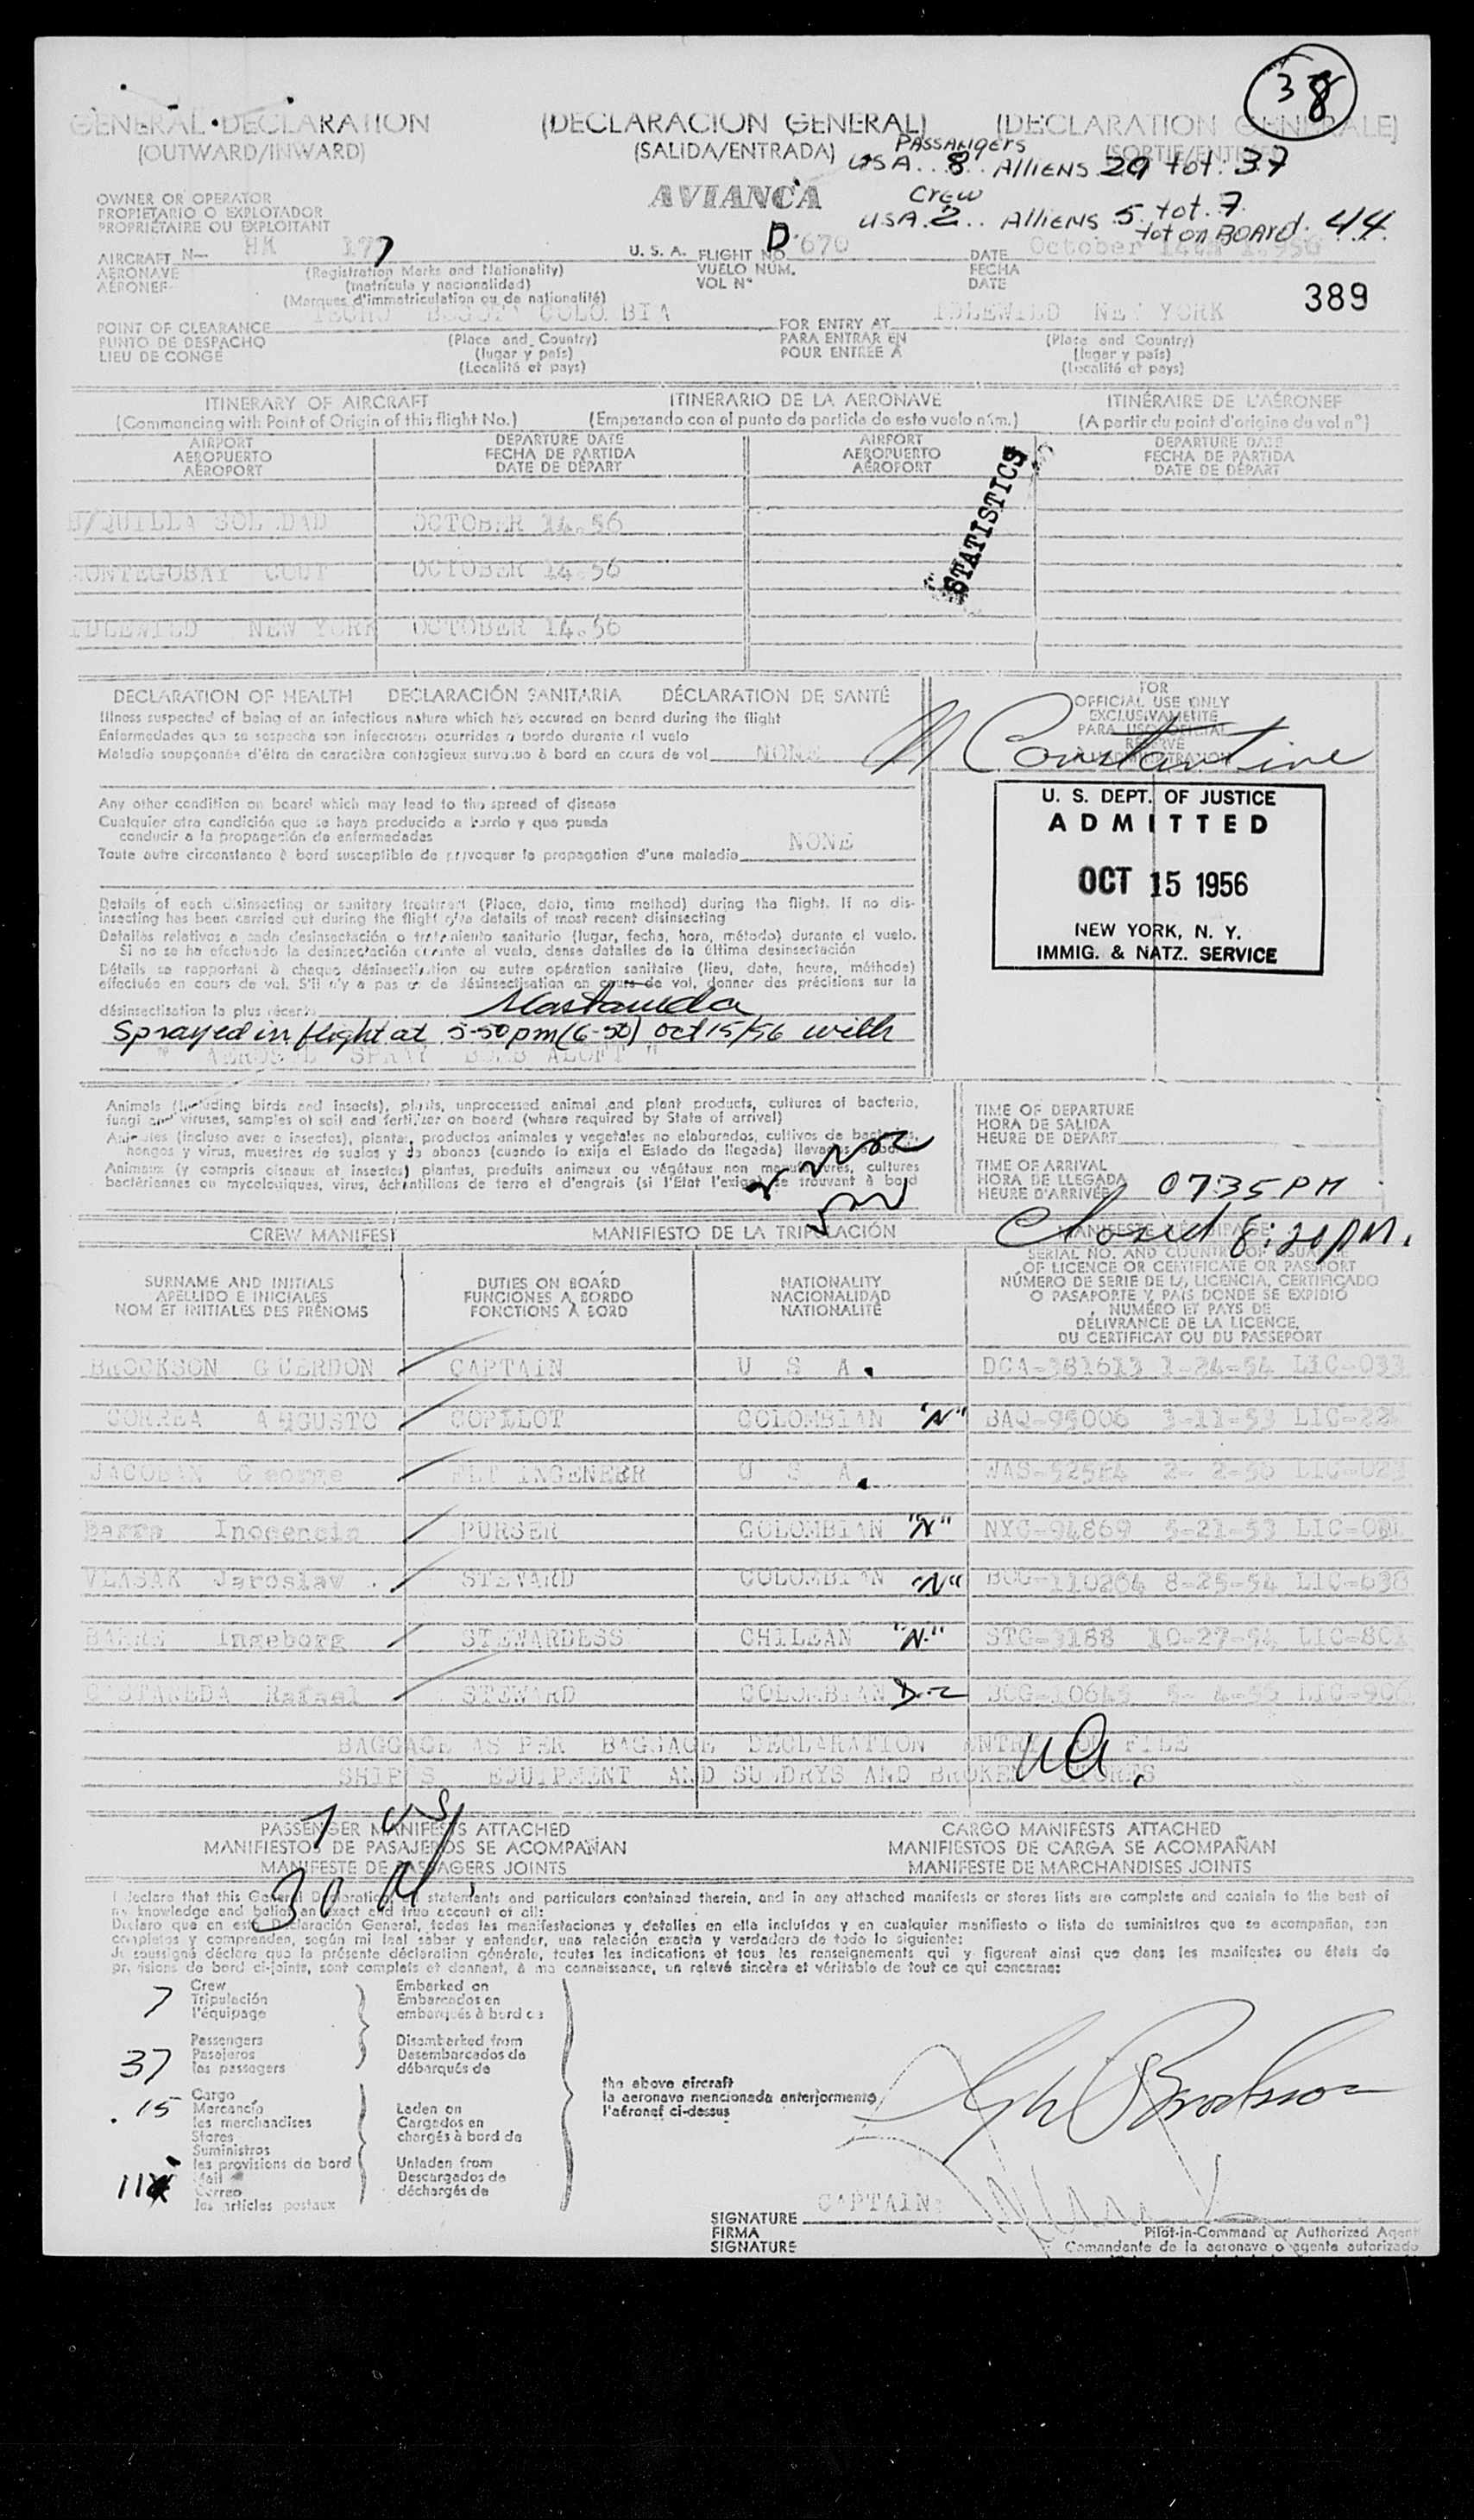 38
GENERAL DECLARATION (DECLARACION GENERAL) (DECLARATION GENERALE)
(OUTWARD/INWARD) (SALIDA/ENTRADA) (SORTIE/ENTREE)
PASSANGERS
USA..8.. AlliENS 29 tot: 37
AVIANCA
Crew
USA.2.. AlliENS 5. tot. 7.
tot on BOARD. 44
OWNER OR OPERATOR
PROPIETARIO O EXPLOTADOR
PROPRIÉTAIRE OU EXPLOITANT
AIRCRAFT N— HK 177 U. S. A. FLIGHT NO. D 670 DATE October 14th 1.956
AERONAVE (Registration Marks and Nationality) VUELO NUM. FECHA
AÉRONEF (matrícula y nacionalidad) VOL N° DATE
(Marques d'immatriculation ou de nationalité)
389
POINT OF CLEARANCE TECHO BOGOTA COLO BIA FOR ENTRY AT IDLEWILD NEW YORK
PUNTO DE DESPACHO (Place and Country) PARA ENTRAR EN (Place and Country)
LIEU DE CONGÉ (lugar y país) POUR ENTRÉE A (lugar y país)
(Localité et pays) (Localité et pays)
ITINERARY OF AIRCRAFT ITINERARIO DE LA AERONAVE ITINÉRAIRE DE L'AÉRONEF
(Commencing with Point of Origin of this flight No.) (Empezando con el punto de partida de este vuelo núm.) (A partir du point d'origine du vol n°)
AIRPORT DEPARTURE DATE AIRPORT DEPARTURE DATE
AEROPUERTO FECHA DE PARTIDA AEROPUERTO FECHA DE PARTIDA
AÉROPORT DATE DE DÉPART AÉROPORT DATE DE DÉPART
STATISTICS
B/QUILLA SOLEDAD OCTOBER 14.56
MONTEGOBAY OCTOBER 14.56
IDLEWILD NEW YORK OCTOBER 14.56
DECLARATION OF HEALTH DECLARACIÓN SANITARIA DÉCLARATION DE SANTÉ
Illness suspected of being of an infectious nature which has occured on board during the flight
Enfermedades que se sospecha son infecciosas ocurridas a bordo durante el vuelo
Maladie soupçonnée d'être de caractère contagieux survenue à bord en cours de vol NONE
Any other condition on board which may lead to the spread of disease
Cualquier otra condición que se haya producido a bordo y que pueda
conducir a la propagación de enfermedades
Toute autre circonstance à bord susceptible de provoquer la propagation d'une maladie NONE
Details of each disinsecting or sanitary treatment (Place, date, time method) during the flight. If no dis-
insecting has been carried out during the flight give details of most recent disinsecting
Detalles relativos a cada desinsectación o tratamiento sanitario (lugar, fecha, hora, método) durante el vuelo.
Si no se ha efectuado la desinsectación durante el vuelo, dense detalles de la última desinsectación
Détails se rapportant à chaque désinsectisation ou autre opération sanitaire (lieu, date, heure, méthode)
effectuée en cours de vol. S'il n'y a pas eu de désinsectisation en cours de vol, donner des précisions sur la
désinsectisation la plus récente
Sprayed in flight at 5-50pm (6-50) oct 15/56 with
" AEROSOL SPRAY BOMB ALOFT "
FOR
OFFICIAL USE ONLY
EXCLUSIVAMENTE
PARA USO OFICIAL
RÉSERVÉ
À L'ADMINISTRATION
Constantine
U. S. DEPT. OF JUSTICE
ADMITTED
OCT 15 1956
NEW YORK, N. Y.
IMMIG. & NATZ. SERVICE
Animals (Including birds and insects), plants, unprocessed animal and plant products, cultures of bacteria,
fungi and viruses, samples of soil and fertilizer on board (where required by State of arrival)
Animales (incluso aves o insectos), plantas, productos animales y vegetales no elaborados, cultivos de bacterias,
hongos y virus, muestras de suelos y de abonos (cuando lo exija el Estado de llegada) llevados a bordo
Animaux (y compris oiseaux et insectes) plantes, produits animaux ou végétaux non manufacturés, cultures
bactériennes ou mycologiques, virus, échantillons de terre et d'engrais (si l'Etat l'exige) se trouvant à bord
TIME OF DEPARTURE
HORA DE SALIDA
HEURE DE DÉPART
TIME OF ARRIVAL
HORA DE LLEGADA
HEURE D'ARRIVÉE 0735 PM
Closed 8:20 PM.
CREW MANIFEST MANIFIESTO DE LA TRIPULACIÓN
SURNAME AND INITIALS DUTIES ON BOARD NATIONALITY SERIAL NO. AND COUNTRY OF ISSUANCE
APELLIDO E INICIALES FUNCIONES A BORDO NACIONALIDAD OF LICENCE OR CERTIFICATE OR PASSPORT
NOM ET INITIALES DES PRÉNOMS FONCTIONS À BORD NATIONALITÉ NÚMERO DE SERIE DE LA LICENCIA, CERTIFICADO
O PASAPORTE Y PAIS DONDE SE EXPIDIÓ
NUMÉRO ET PAYS DE
DÉLIVRANCE DE LA LICENCE,
DU CERTIFICAT OU DU PASSEPORT
BROOKSON GUERDON CAPTAIN U S A. DCA-381613 1-24-54 LIC-033
CORREA AUGUSTO COPILOT COLOMBIAN "N" BAQ-95006 3-11-53 LIC-22
JACOBAN George FLT INGENERR U S A. WAS-525 2- 2-56 LIC-023
Barra Inocencia PURSER COLOMBIAN "N" NYC-94869 5-21-53 LIC-
VLASAK Jaroslaw STEWARD COLOMBIAN "N" BOG-110264 8-25-54 LIC-638
BARRE Ingeborg STEWARDESS CHILEAN "N." STG-3188 10-27-54 LIC-80
CASTANEDA Rafael STEWARD COLOMBIAN D-2 BOG-
BAGGAGE AS PER BAGGAGE DECLARATION ENTRY ON FILE
SHIP'S EQUIPMENT AND SUNDRYS AND BROKEN STORES
PASSENGER MANIFESTS ATTACHED CARGO MANIFESTS ATTACHED
MANIFIESTOS DE PASAJEROS SE ACOMPAÑAN MANIFIESTOS DE CARGA SE ACOMPAÑAN
MANIFESTE DE PASSAGERS JOINTS MANIFESTE DE MARCHANDISES JOINTS
7 US
30 A
I declare that this General Declaration, all statements and particulars contained therein, and in any attached manifests or stores lists are complete and contain to the best of
my knowledge and belief an exact and true account of all:
Declaro que en esta Declaración General, todas las manifestaciones y detalles en ella incluídos y en cualquier manifiesto o lista de suministros que se acompañan, son
completos y comprenden, según mi leal saber y entender, una relación exacta y verdadera de todo lo siguiente:
Je soussigné déclare que la présente déclaration générale, toutes les indications et tous les renseignements qui y figurent ainsi que dans les manifestes ou états de
provisions de bord ci-joints, sont complets et donnent, à ma connaissance, un relevé sincère et véritable de tout ce qui concerne:
7 Crew Embarked on
Tripulación Embarcados en
l'équipage embarqués à bord de
Passengers Disembarked from
37 Pasajeros Desembarcados de
les passagers débarqués de
the above aircraft
la aeronave mencionada anteriormente
l'aéronef ci-dessus
Cargo
15 Mercancía Laden on
les merchandises Cargados en
Stores chargés à bord de
Suministros
les provisions de bord Unladen from
Mail Descargados de
Correo déchargés de
les articles postaux
CAPTAIN:
SIGNATURE
FIRMA
SIGNATURE
Pilot-in-Command or Authorized Agent
Comandante de la aeronave o agente autorizado